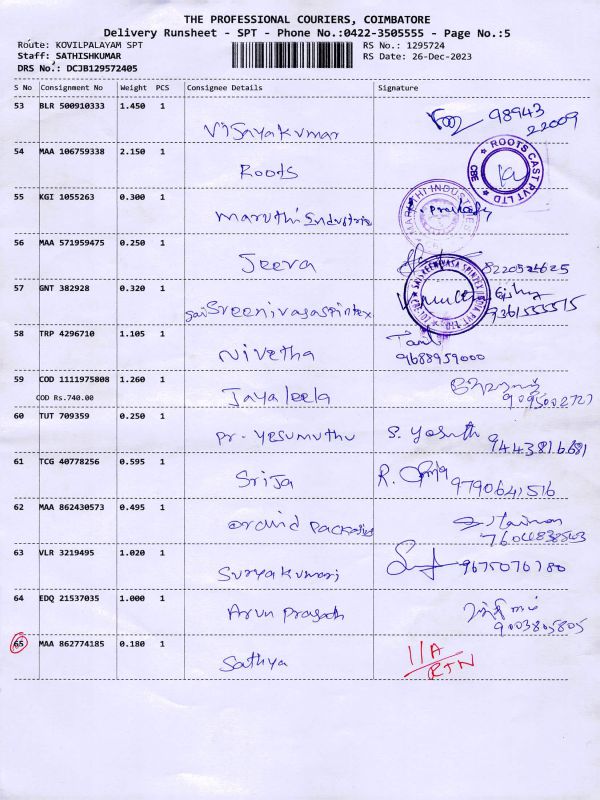 THE PROFESSIONAL COURIERS, COIMBATORE
Delivery Runsheet - SPT - Phone No.:0422-3505555 - Page No.:5
Route: KOVILPALAYAM SPT
RS No.: 1295724
Staff: SATHISHKUMAR
RS Date: 26-Dec-2023
DRS No.: DCJB129572405
S No Consignment No Weight PCS Consignee Details Signature
53 BLR 500910333 1.450 1 Visayakumar 98943 22009
54 MAA 106759338 2.150 1 Roots
ROOTS CAST PVT LTD CBE
55 KGI 1055263 0.300 1 maruthi Industries
56 MAA 571959475 0.250 1 Jeeva
57 GNT 382928 0.320 1 sai Sreenivasaspintex
58 TRP 4296710 1.105 1 Nivetha
9688959000
59 COD 1111975808 1.260 1 Jayaleela
COD Rs.740.00
60 TUT 709359 0.250 1 pr. yesumuthu S. Yosuth 9443816681
61 TCG 40778256 0.595 1 Srija R. 9790641516
62 MAA 862430573 0.495 1 orchid packaging
63 VLR 3219495 1.020 1 Suryakumari 9675076780
64 EDQ 21537035 1.000 1 Arun prasath
9003805805
65 MAA 862774185 0.180 1 Sathya
RTN